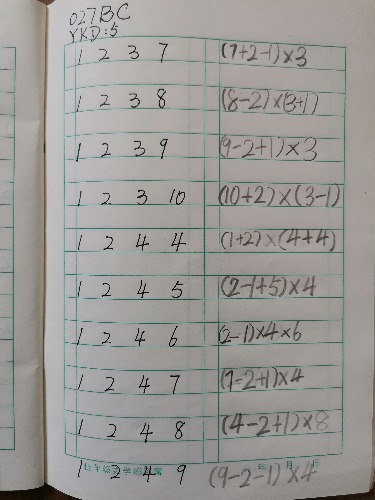 027BC
YKD:5
1 2 3 7 (7+2-1)×3
1 2 3 8 (8-2)×(3+1)
1 2 3 9 (9-2+1)×3
1 2 3 10 (10+2)×(3-1)
1 2 4 4 (1+2)×(4+4)
1 2 4 5 (2-1+5)×4
1 2 4 6 (2-1)×4×6
1 2 4 7 (7-2+1)×4
1 2 4 8 (4-2+1)×8
1 2 4 9 (9-2-1)×4
年 月 日